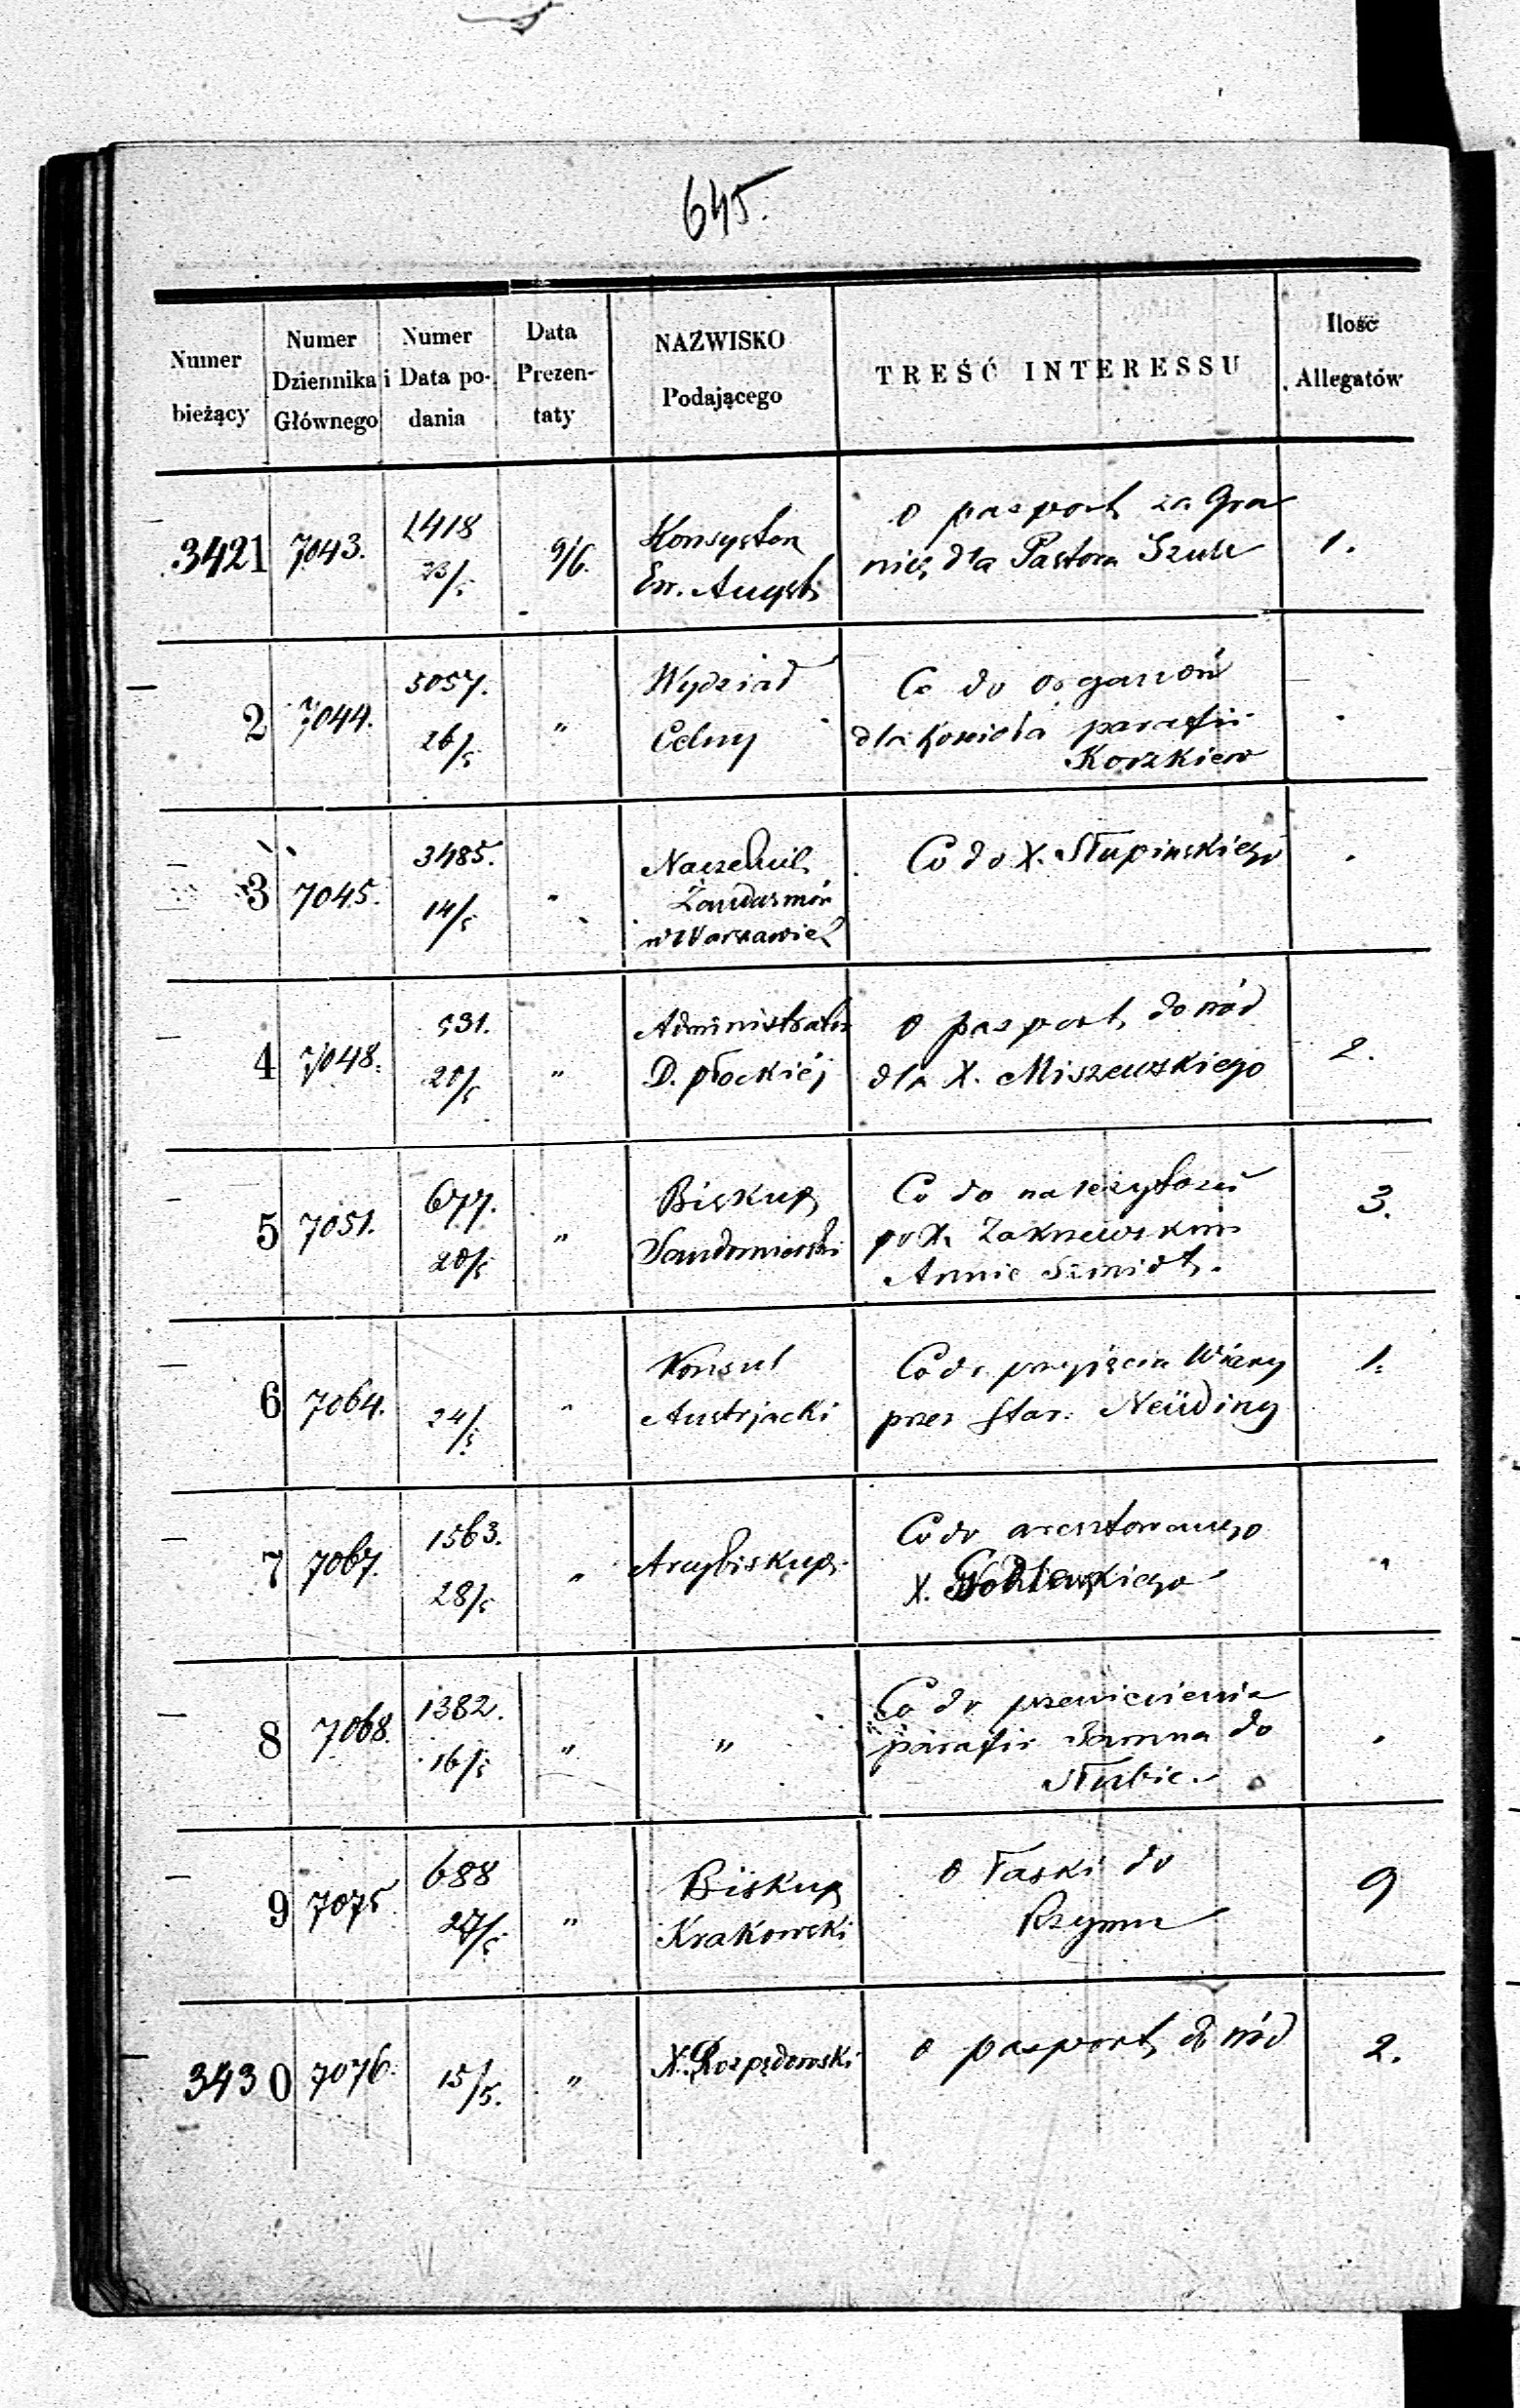 645.
Numer bieżący | Numer Dziennika Głównego | Numer i Data podania | Data Prezentaty | NAZWISKO Podającego | TREŚĆ INTERESSU | Ilość Allegatów
3421 | 7043. | 1418 23/5 | 9/6. | Konsystor | O pasport za Gra | 1.
Ew. Augsb | nicę dla Pastora Szulc
2 | 7044. | 5057. 26/5 | " | Wydział | Co do organów | .
Celny | dla kościoła parafii
Korzkiew
3 | 7045. | 3485. 14/5 | " | Naczelnik | Co do X. Słupinskiego | .
Żandarmów
w Warszawie
4 | 7048. | 531. 20/5 | " | Administrator | O pasport do wód | 2.
D. płockiéj | dla X. Miszewskiego
5 | 7051. | 677. 20/5 | " | Biskup | Co do należytości | 3.
Sandomierski | po X.
Annie Szmidt.
6 | 7064. | 24/5 | " | Konsul | Co do przyjęcia Wiary | 1.
Austrjacki | przez Star. Neüding
7 | 7067. | 1563. 28/5 | " | Arcybiskup | Co do aresztowanego | "
X.
8 | 7068. | 1382. 16/5 | " | " | Co do przeniesienia | .
parafii Tamna do
Słubic.
9 | 7075 | 688 27/5 | " | Biskup | O Łaski do | 9
Krakowski | Rzymu
3430 | 7076. | 15/5. | " | X. Rozpędowski | O pasport do wód | 2.